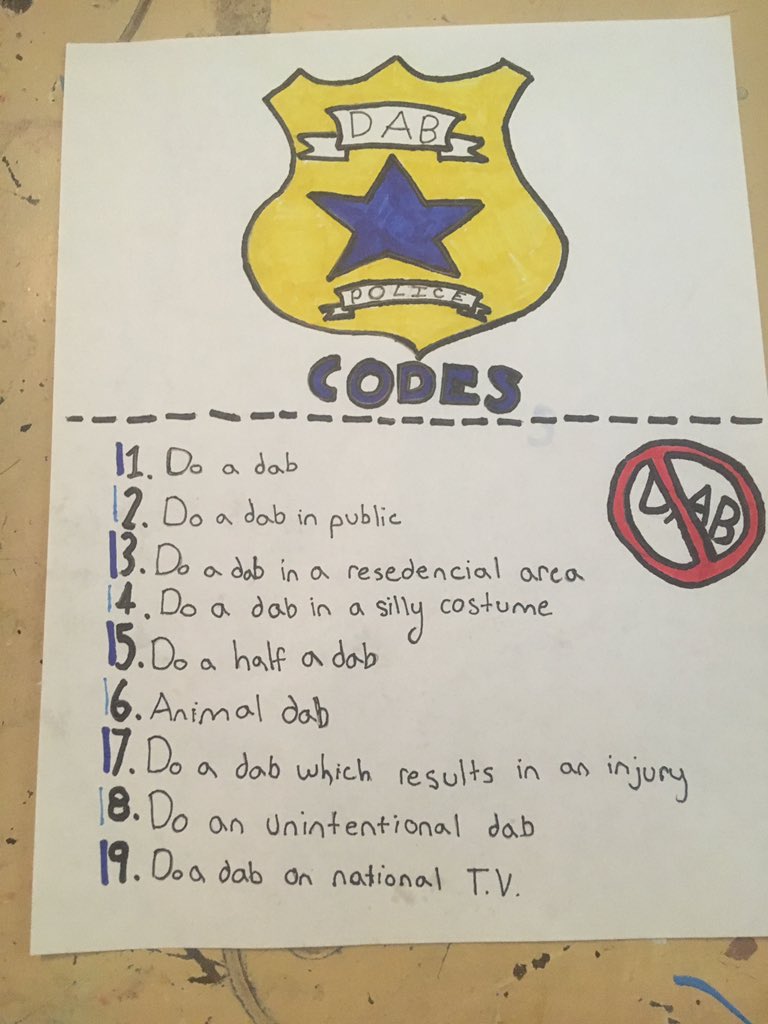 DAB
POLICE
CODES
1. Do a dab
2. Do a dab in public
DAB
3. Do a dab in a resedencial area
4. Do a dab in a silly costume
5. Do a half a dab
6. Animal dab
7. Do a dab which results in an injury
8. Do an unintentional dab
9. Do a dab on national T.V.